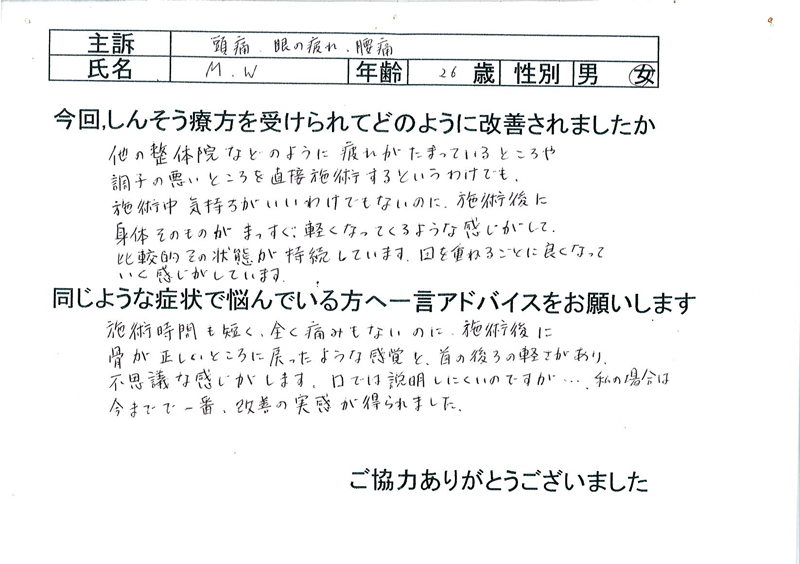 主訴 頭痛、眼の疲れ、腰痛
氏名 M.W 年齢 26 歳 性別 男 女
今回,しんそう療方を受けられてどのように改善されましたか
他の整体院などのように疲れがたまっているところや
調子の悪いところを直接施術するというわけでも、
施術中気持ちがいいわけでもないのに、施術後に
身体そのものがまっすぐ、軽くなってくるような感じがして、
比較的その状態が持続しています。回を重ねるごとに良くなって
いく感じがしています。
同じような症状で悩んでいる方へ一言アドバイスをお願いします
施術時間も短く、全く痛みもないのに、施術後に
骨が正しいところに戻ったような感覚と、首の後ろの軽さがあり、
不思議な感じがします。口では説明しにくいのですが…、私の場合は
今までで一番、改善の実感が得られました。
ご協力ありがとうございました